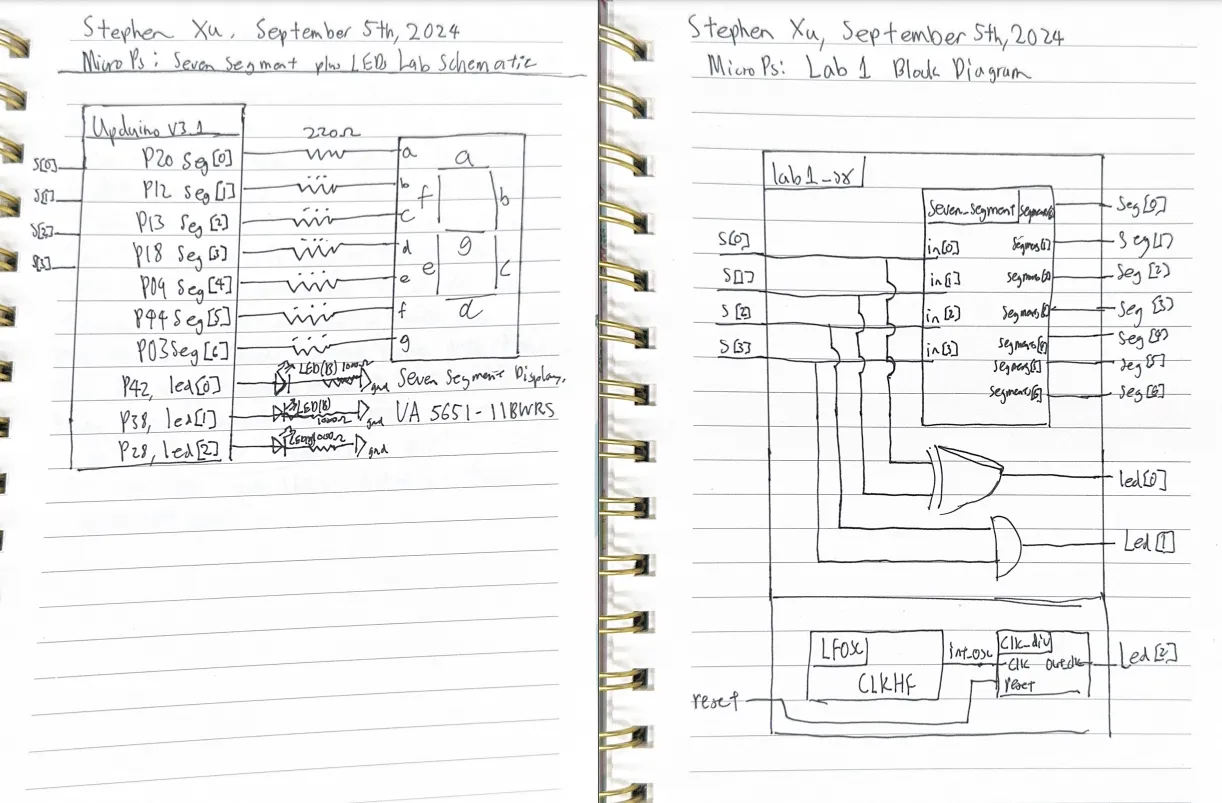 Stephen Xu, September 5th, 2024
MicroPs: Seven Segment plus LEDs Lab Schematic
Upduino v3.1
220Ω
S[0]
S[1]
S[2]
S[3]
P20 Seg[0]
P12 Seg[1]
P13 Seg[2]
P18 Seg[3]
P09 Seg[4]
P44 Seg[5]
P03 Seg[6]
P42, led[0]
P38, led[1]
P28, led[2]
a
b
c
d
e
f
g
a
f
b
g
e
c
d
LED(B) 1000Ω
gnd
LED(B)
1000Ω
gnd
1000Ω
gnd
Seven Segment Display,
UA 5651-11BWRS
Stephen Xu, September 5th, 2024
MicroPs: Lab 1 Block Diagram
lab1_sx
Seven_Segment
S[0]
S[1]
S[2]
S[3]
in[0]
in[1]
in[2]
in[3]
Segments[1]
Seg[0]
Seg[1]
Seg[2]
Seg[3]
Seg[4]
Seg[5]
Seg[6]
led[0]
Led[1]
LFOSC
CLKHF
int_osc
Clk_div
Clk
outclk
reset
Led[2]
reset